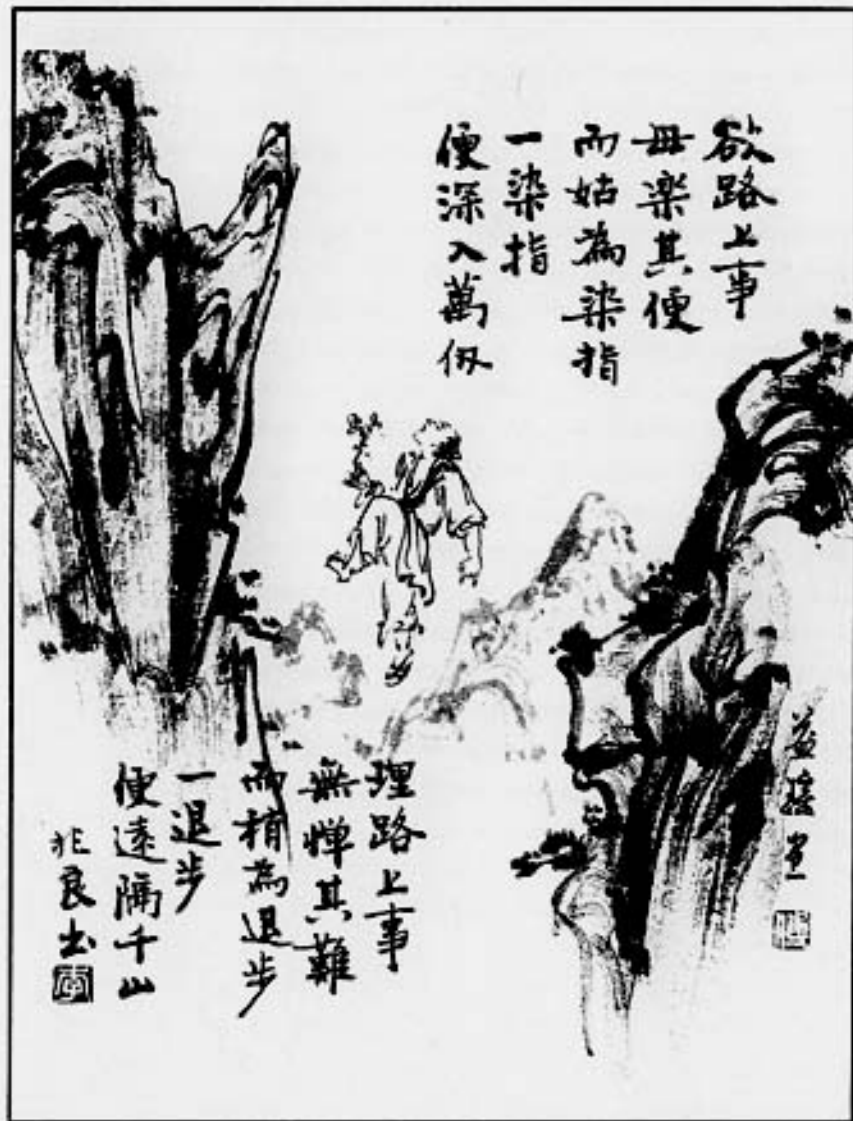 欲路上事
毋楽其便
而姑為染指
一染指
便深入萬仭
理路上事
無憚其難
而稍為退步
一退步
便遠隔千山
兆良书